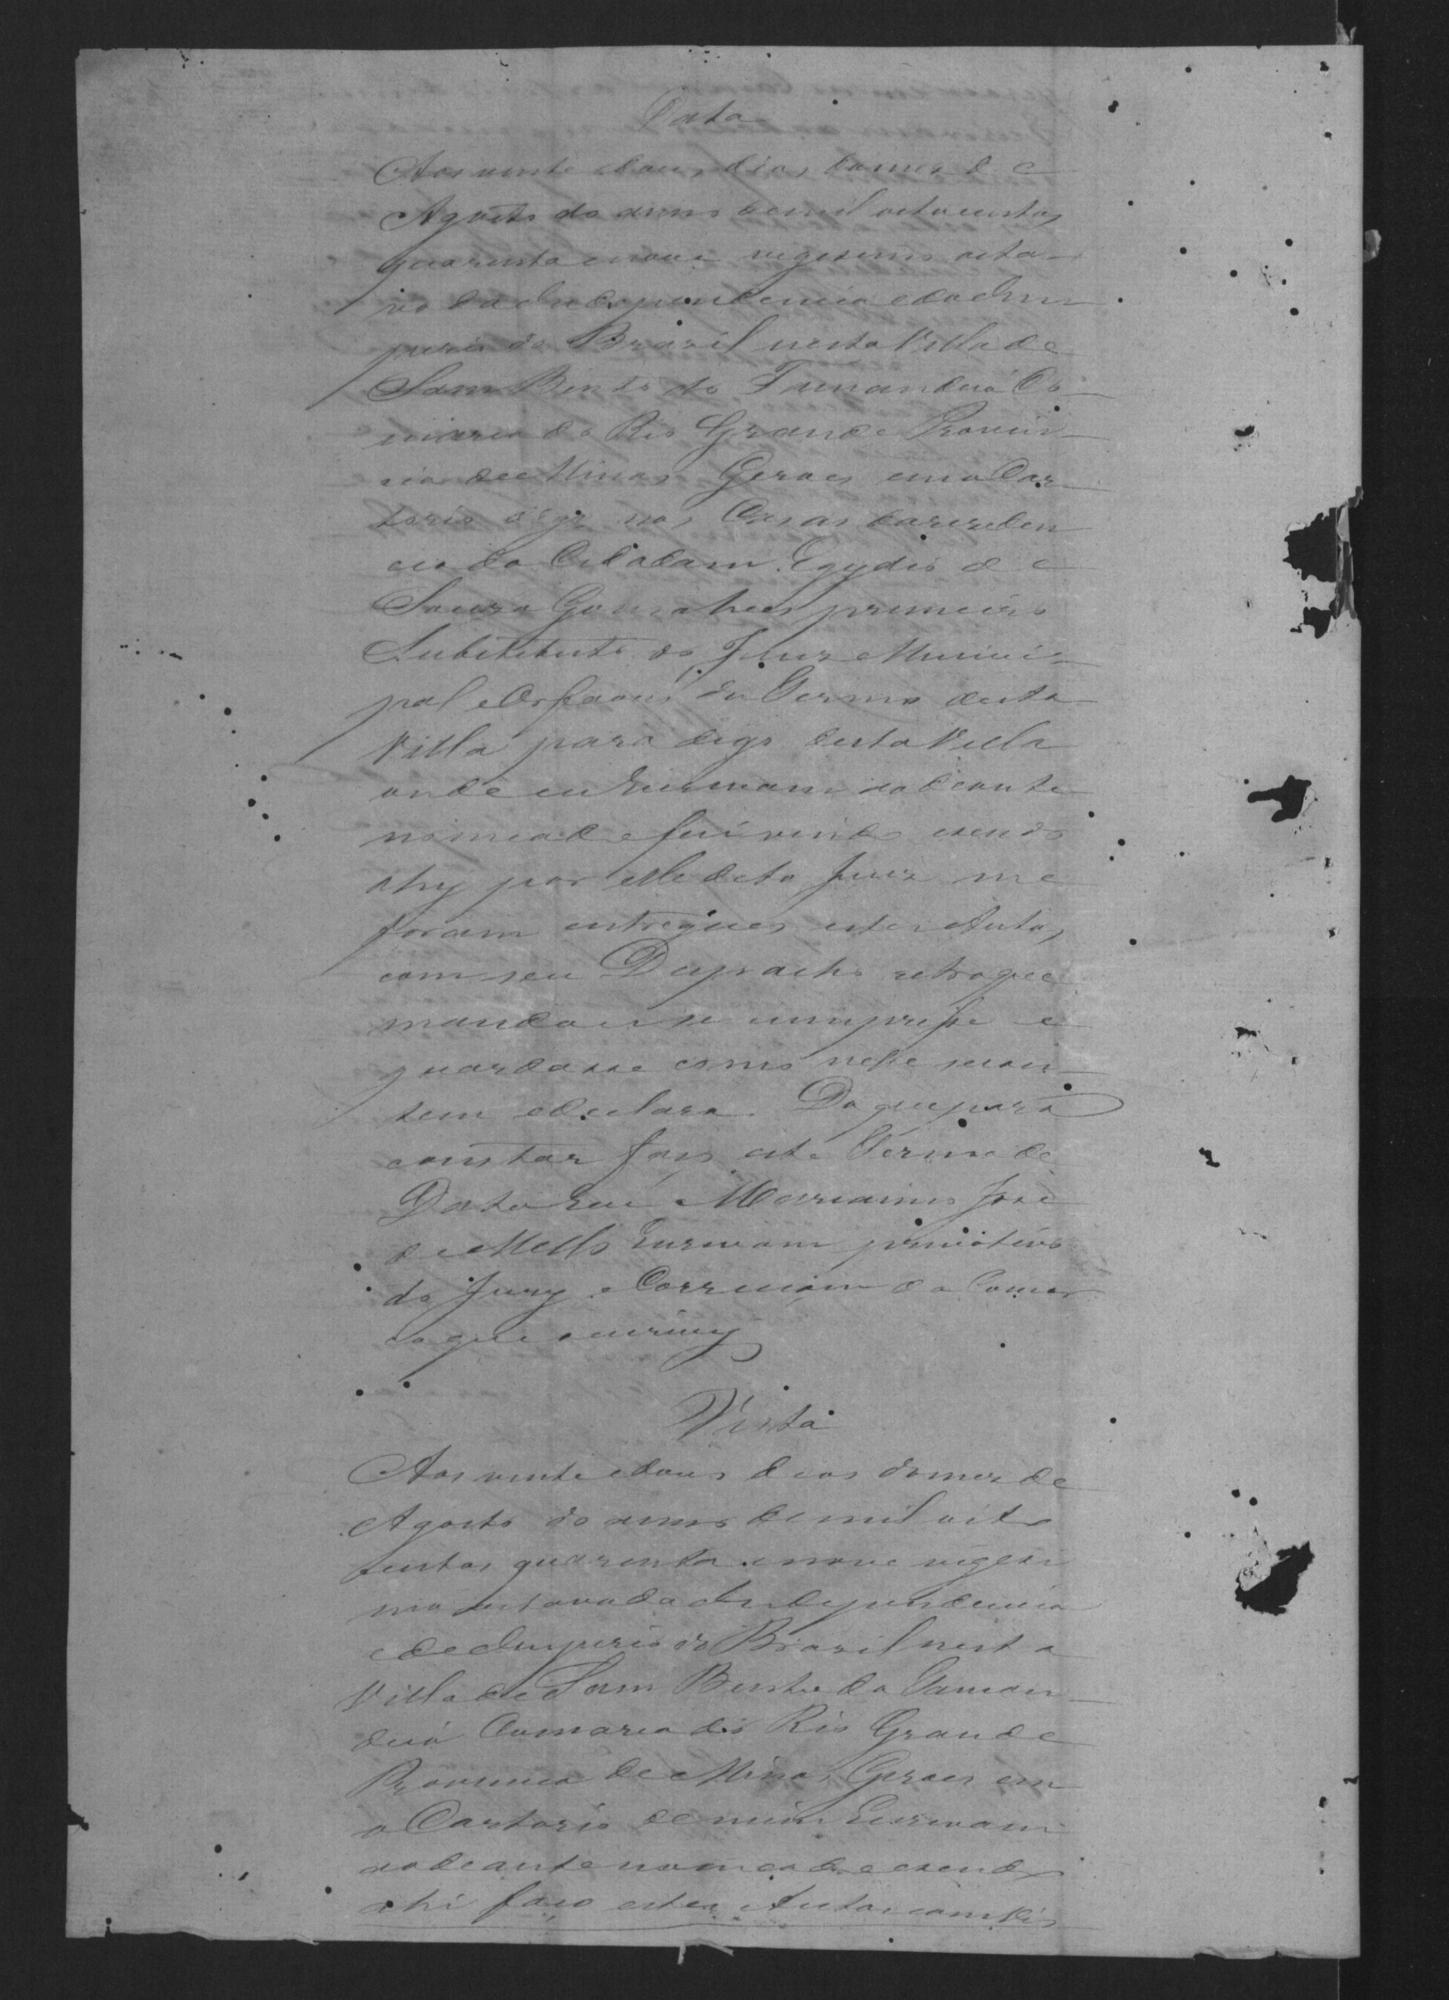 Data
Aos vinte edous dias domes de
Agosto do anno demil oitocentos
quarenta enove vigesimo oita-
vo da Independencia edo Im
perio do Brazil nesta Villa de
Sam Bento do Tamanduá Co
marca do Rio Grande Provin-
cia de Minas Geraes em o Car
torio digo nas Casas da residen
cia do Cidadam Egydio de
Souza Gonsalves primeiro
Substituto do Juiz Munici-
pal e Orfaons do Termo desta
Villa para digo desta Villa
onde eu Escrivam ao deante
nomeado e fui vindo e sendo
ahy por elle dito Juiz me
foram entregues estes Autos
com seu Despacho retro que
mandou se cumprisse e
guardasse como nelle secon-
tem edeclara. Do que para
constar faço este Termo de
Data Eu Marianno José
de Mello Escrivam privativo
do Jury e Correiçam da Comar
ca que escrevy
Vista
Aos vinte edous dias do mez de
Agosto do anno de mil oito
centos quarenta enove vigesi
mo oitavo da Independencia
e do Imperio do Brazil nesta
Villa de Sam Bento do Taman-
duá Comarca do Rio Grande
Provincia de Minas Geraes em
o Cartorio de mim Escrivam
ao deante nomeado e sendo
ahi faço estes Autos com Vis